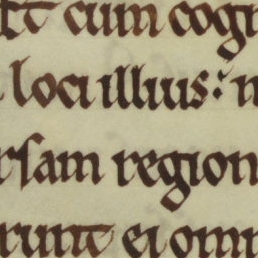 cum cogn
loci illius: n
rsam region
runt ei omn